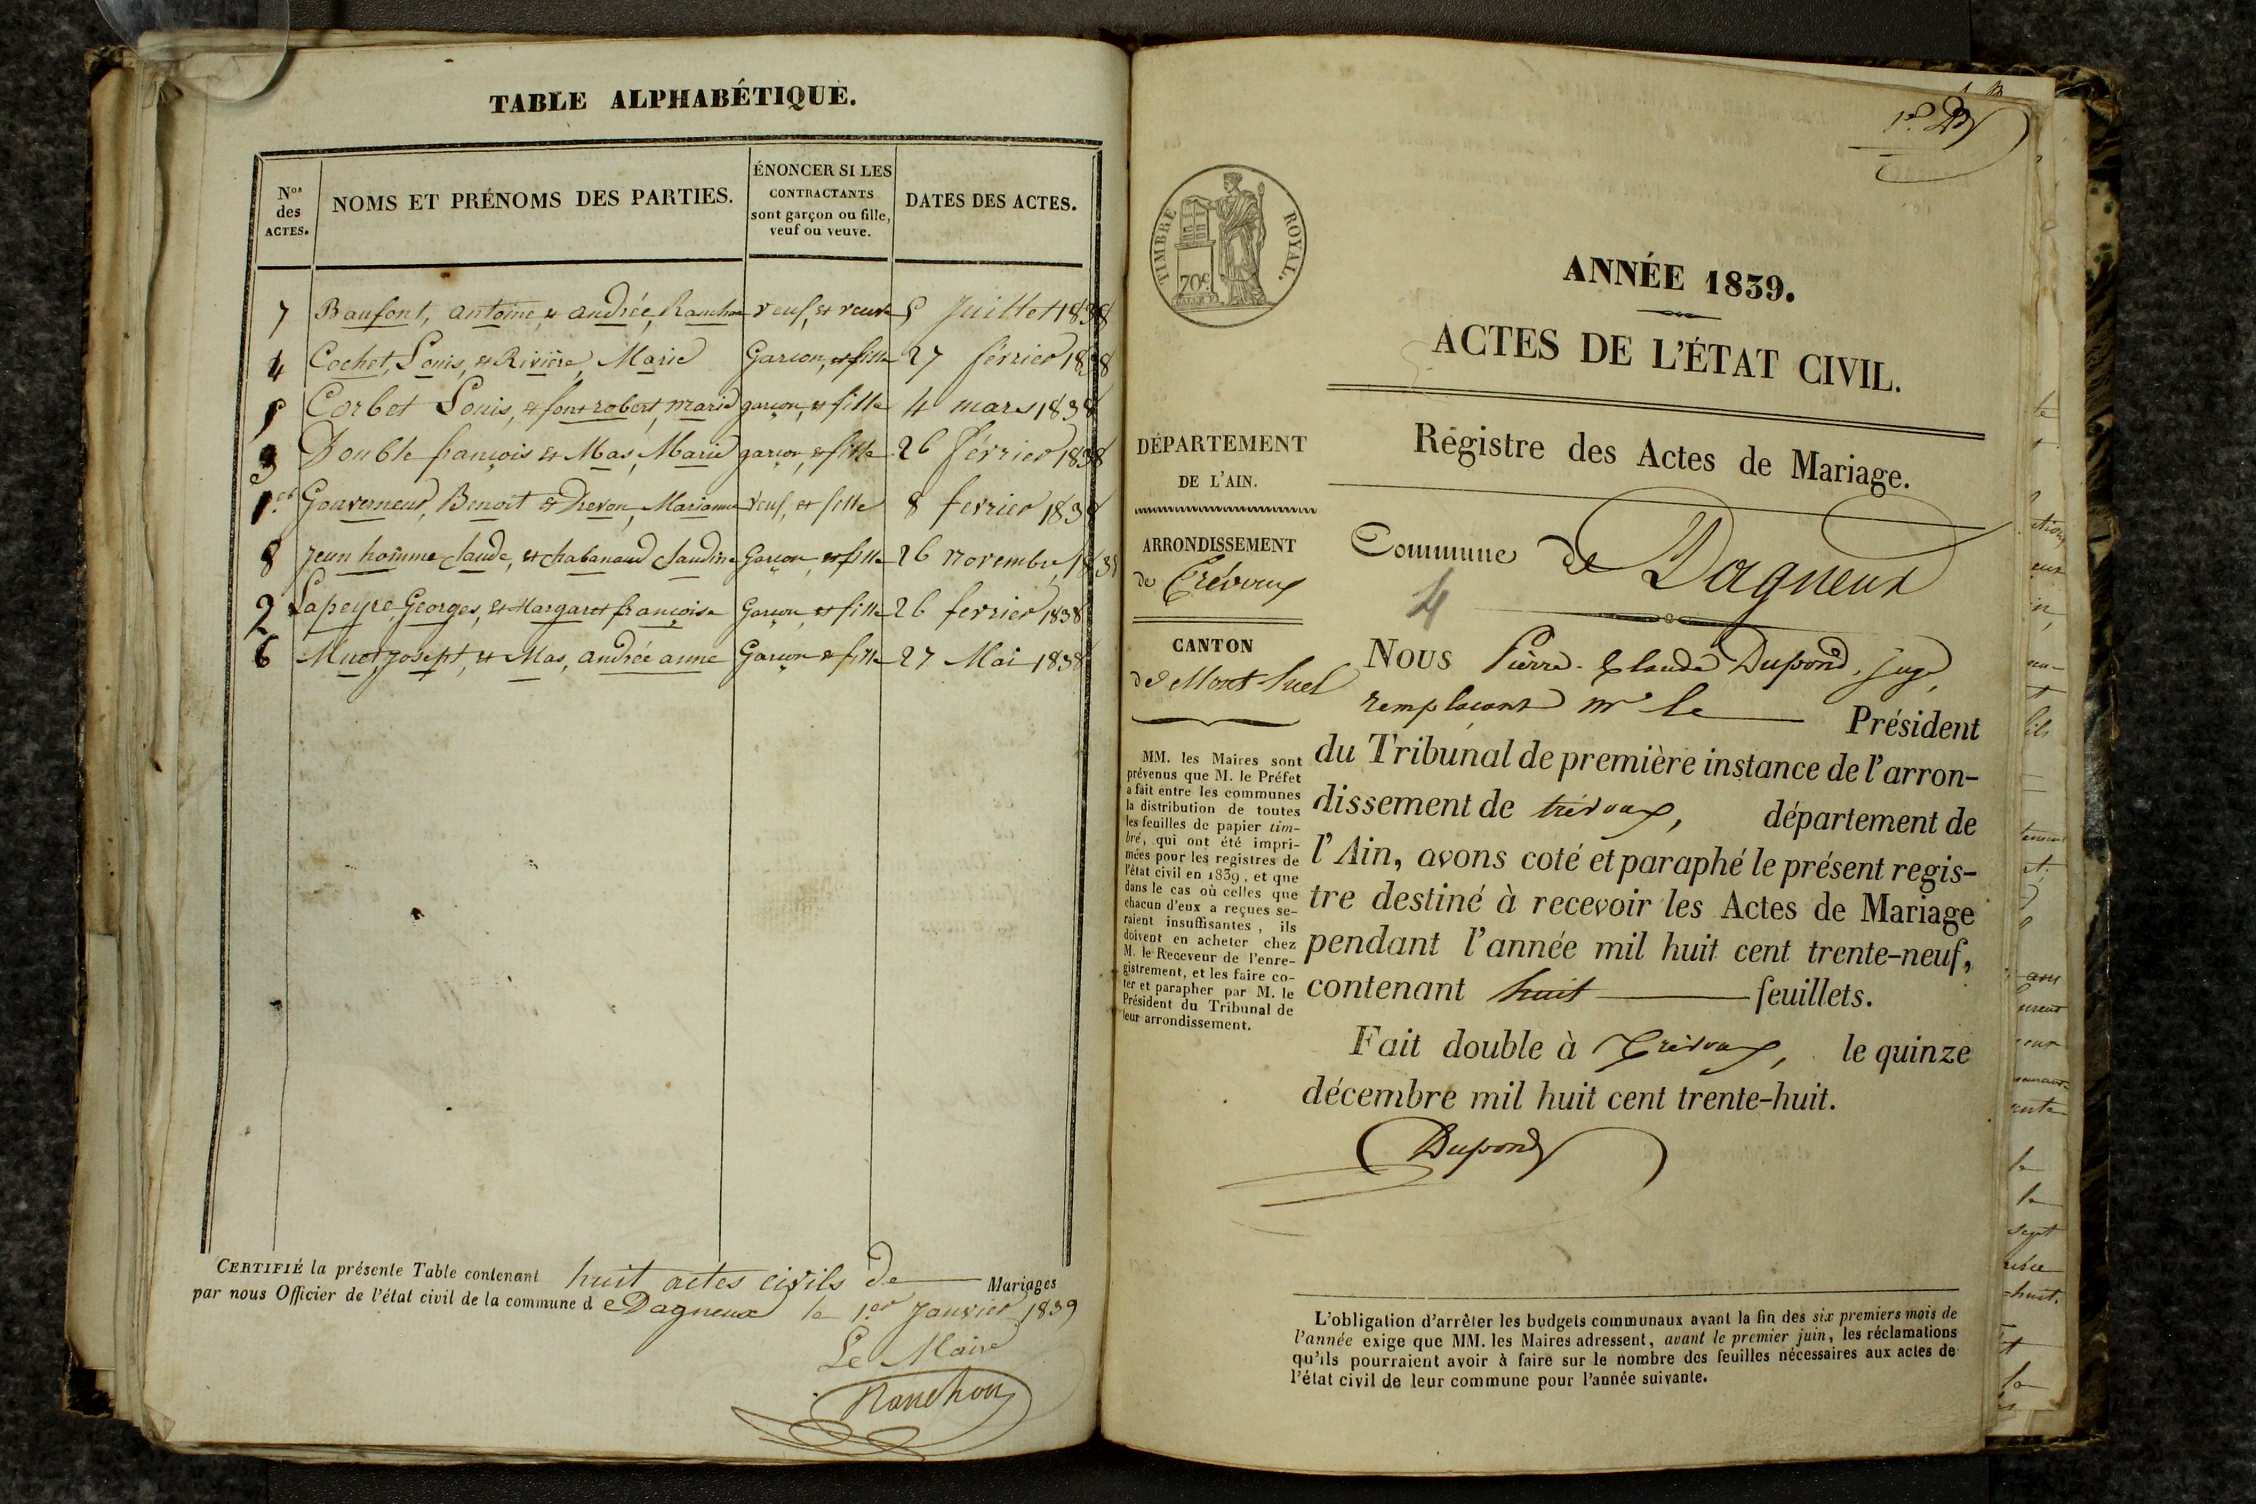 TABLE ALPHABÉTIQUE.
Nos des ACTES.
NOMS ET PRÉNOMS DES PARTIES.
ÉNONCER SI LES CONTRACTANTS sont garçon ou fille, veuf ou veuve.
DATES DES ACTES.
7 Baufont, antoine, et andrée, Ranchon veuf, et veuve 5 Juillet 1838
4 Cochet, Louis, et Rivière, Marie Garcon, et fille 27 février 1838
5 Corbet Louis, et fontrobert, marie garçon, et fille 4 mars 1838
3 Double françois et Mas, Marie garçon, et fille 26 février 1838
1er Gouverneur, Benoit et Drevon, Marianne Veuf, et fille 8 fevrier 1838
8 Jeun homme Claude, et chabanaud Claudine Garçon, et fille 26 novembre, 1838
2 Lapeyre Georges, et Margaret françoise Garçon, et fille 26 fevrier 1838
6 Muet, Joseph, et Mas, andrée anne Garçon et fille 27 Mai 1838
CERTIFIÉ la présente Table contenant huit actes civils de Mariages
par nous Officier de l'état civil de la commune de Dagneux le 1er Janvier 1839
Le Maire
Ranchon
TIMBRE ROYAL.
70c
ANNÉE 1839.
ACTES DE L'ÉTAT CIVIL.
Régistre des Actes de Mariage.
Commune de Dagneux
4
DÉPARTEMENT
DE L'AIN.
ARRONDISSEMENT
de Trévoux
CANTON
de Mont-luel
MM. les Maires sont
prévenus que M. le Préfet
a fait entre les communes
la distribution de toutes
les feuilles de papier tim-
bré, qui ont été impri-
mées pour les registres de
l'état civil en 1839, et que
dans le cas où celles que
chacun d'eux a reçues se-
raient insuffisantes, ils
doivent en acheter chez
M. le Receveur de l'enre-
gistrement, et les faire co-
ter et parapher par M. le
Président du Tribunal de
leur arrondissement.
Nous Pierre-Claude Dupond, juge,
remplaçant mr le Président
du Tribunal de première instance de l'arron-
dissement de trévoux, département de
l'Ain, avons coté et paraphé le présent regis-
tre destiné à recevoir les Actes de Mariage
pendant l'année mil huit cent trente-neuf,
contenant huit feuillets.
Fait double à Trévoux, le quinze
décembre mil huit cent trente-huit.
Dupond
L'obligation d'arrêter les budgets communaux avant la fin des six premiers mois de
l'année exige que MM. les Maires adressent, avant le premier juin, les réclamations
qu'ils pourraient avoir à faire sur le nombre des feuilles nécessaires aux actes de
l'état civil de leur commune pour l'année suivante.